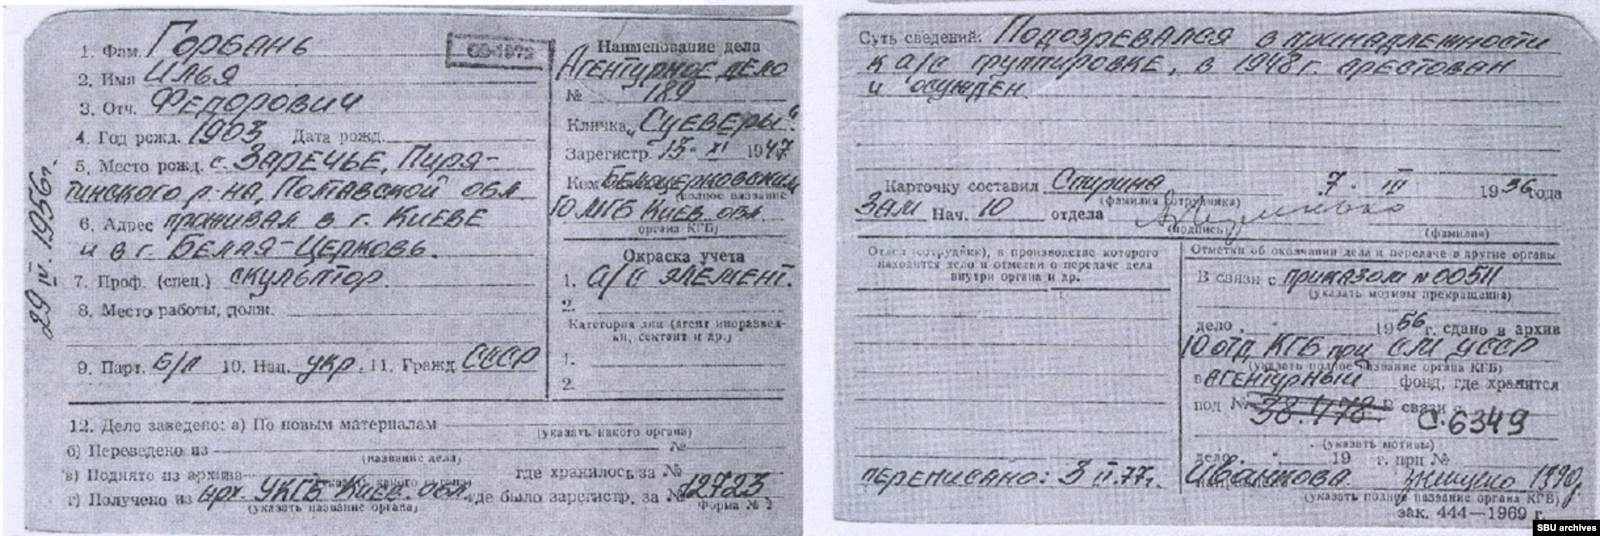 1. Фам. Горбань
2. Имя Илья
3. Отч. Федорович
4. Год рожд. 1903 Дата рожд.
5. Место рожд. с. Заречье, Пиря-
тинского р-на, Полтавской обл
6. Адрес проживал в г. Киеве
и в г. Белая-Церковь.
7. Проф. (спец.) скульптор.
8. Место работы, долж.
9. Парт. б/п 10. Нац. укр. 11. Гражд. СССР
29 IV. 1956г.
Наименование дела
Агентурное дело
№ 189
Кличка „Суеверы"
Зарегистр. 13. XI 1947
Кем Белоцерковским
(полное название
ГО МГБ Киев. обл.
органа КГБ)
Окраска учета
1. а/с элемент.
2.
Категория лиц (агент иноразвед-
ки, сектант и др.)
1.
2.
12. Дело заведено: а) По новым материалам
(указать какого органа)
б) Переведено из №
(название дела)
в) Поднято из архива где хранилось за №
г) Получено из арх. УКГБ Киев. обл. где было зарегистр. за № 12723
(указать название органа)
Форма № 2
Суть сведений: Подозревался в принадлежности
к а/с группировке, в 1948 г. арестован
и осужден.
Карточку составил Спирина 7. III 1956 года
(фамилия сотрудника)
Зам Нач. 10 отдела
(подпись) (фамилия)
Отдел (сотрудник), в производстве которого
находится дело и отметки о передаче дела
внутри органа и др.
Переписано: 3 II.77г.
Отметки об окончании дела и передаче в другие органы
В связи с приказом № 00511
(указать мотивы прекращения)
дело 1956 г. сдано в архив
10 отд. КГБ при СМ УССР
(указать полное название органа КГБ)
в агентурный фонд, где хранится
под № 38.478 В связи с С.6349
(указать мотивы)
дело 19 г. при №
Иванкова. 1990г.
(указать полное название органа КГБ)
зак. 444—1969 г.
SBU archives